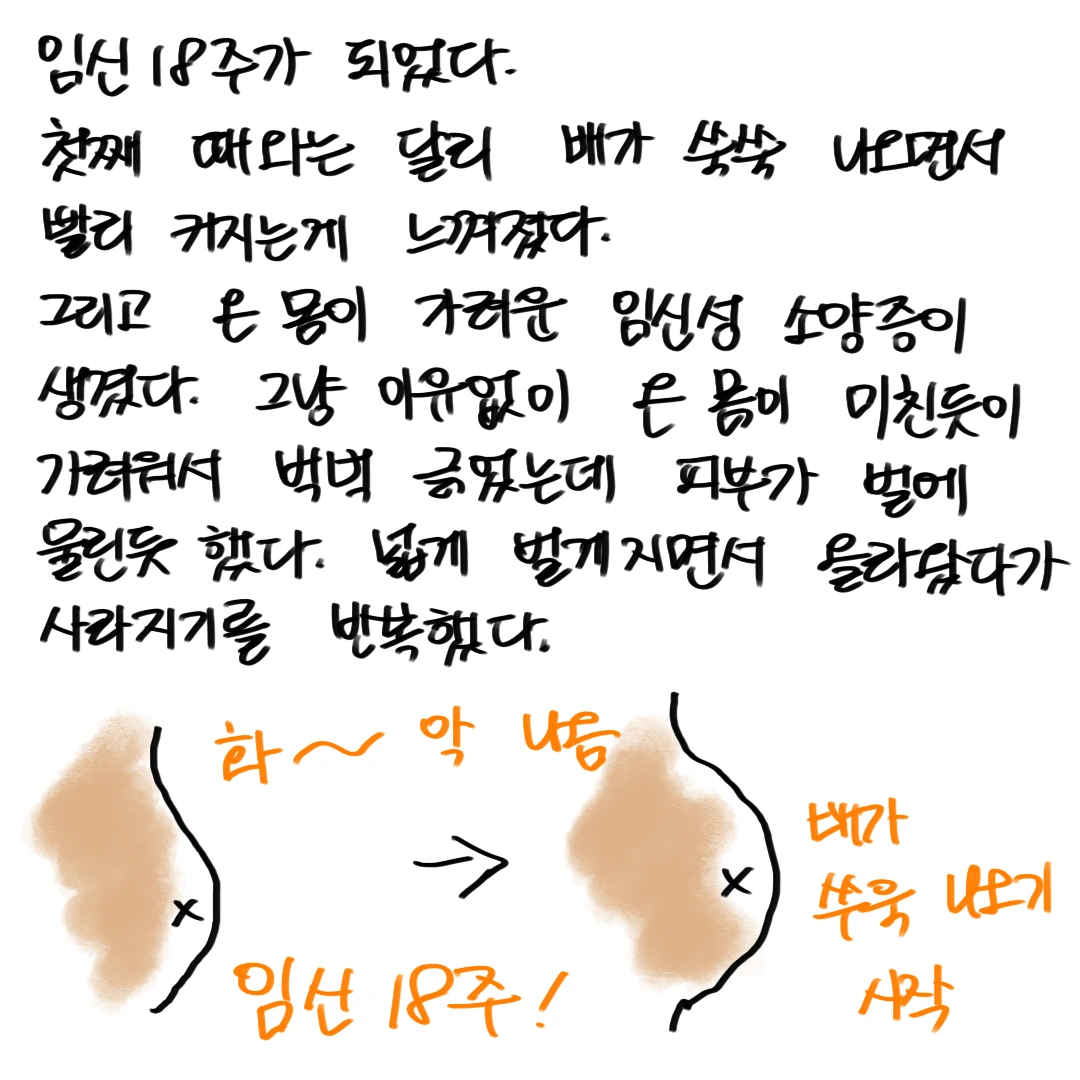 임신 18주가 되었다.
첫째 때와는 달리 배가 쑥쑥 나오면서
빨리 커지는게 느껴졌다.
그리고 온 몸이 가려운 임신성 소양증이
생겼다. 그냥 이유없이 온 몸이 미친듯이
가려워서 벅벅 긁었는데 피부가 벌에
물린듯 했다. 넓게 벌게지면서 올라왔다가
사라지기를 반복했다.
화~악 나옴
배가
쑤욱 나오기
시작
임신 18주!